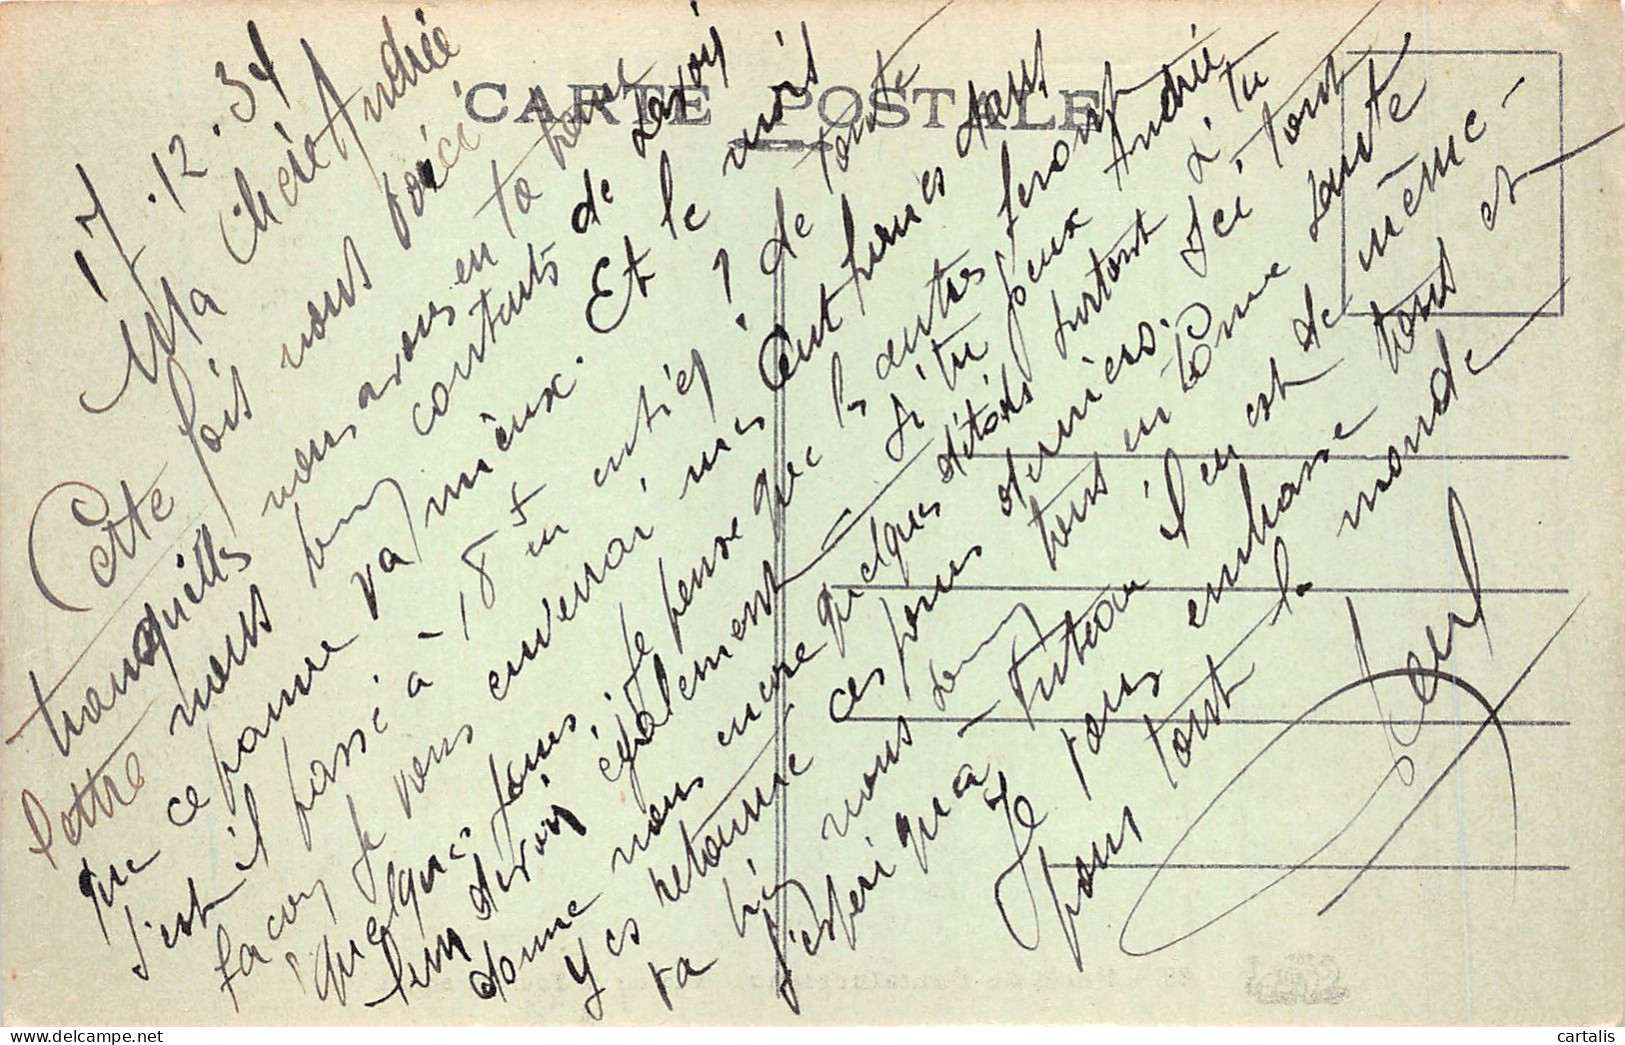 CARTE POSTALE
17.12.34
Ma Chère Andrée
Cette fois nous voici
tranquilles nous avons eu ta
lettre nous contents de savoir
que ce pauvre va mieux. Et le mois
s'est il passé à - 18 F en entier ? de toute
façon je vous enverrai mes cent francs dans
quelques jours, je pense que les autres feront
leur devoir également si tu peux Andrée
donne nous encore quelques détails surtout si tu
y es retourné ces jours derniers. Ici, tout
va bien nous sommes tous en bonne santé
j'espère qu'à Puteaux il en est de même -
Je vous embrasse tous et
pour tout le monde
28
cartalis